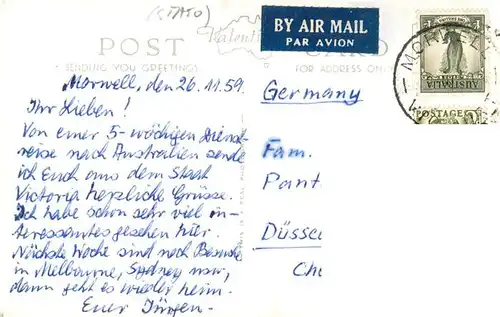 (STATO)
BY AIR MAIL
PAR AVION
POST CARD
Valenti
SENDING YOU GREETINGS
FOR ADDRESS ONLY
MORWELL
AUSTRALIA
POSTAGE
Morwell, den 26.11.59.
Ihr Lieben!
Von einer 5-wöchigen Dienst-
reise nach Australien sende
ich Euch aus dem Staat
Victoria herzliche Grüsse.
Ich habe schon sehr viel in-
teressantes gesehen hier.
Nächste Woche sind noch Besuche
in Melbourne, Sydney usw,
dann geht es wieder heim.
Euer Jürgen-
Germany
Fam.
Pant
Düssel